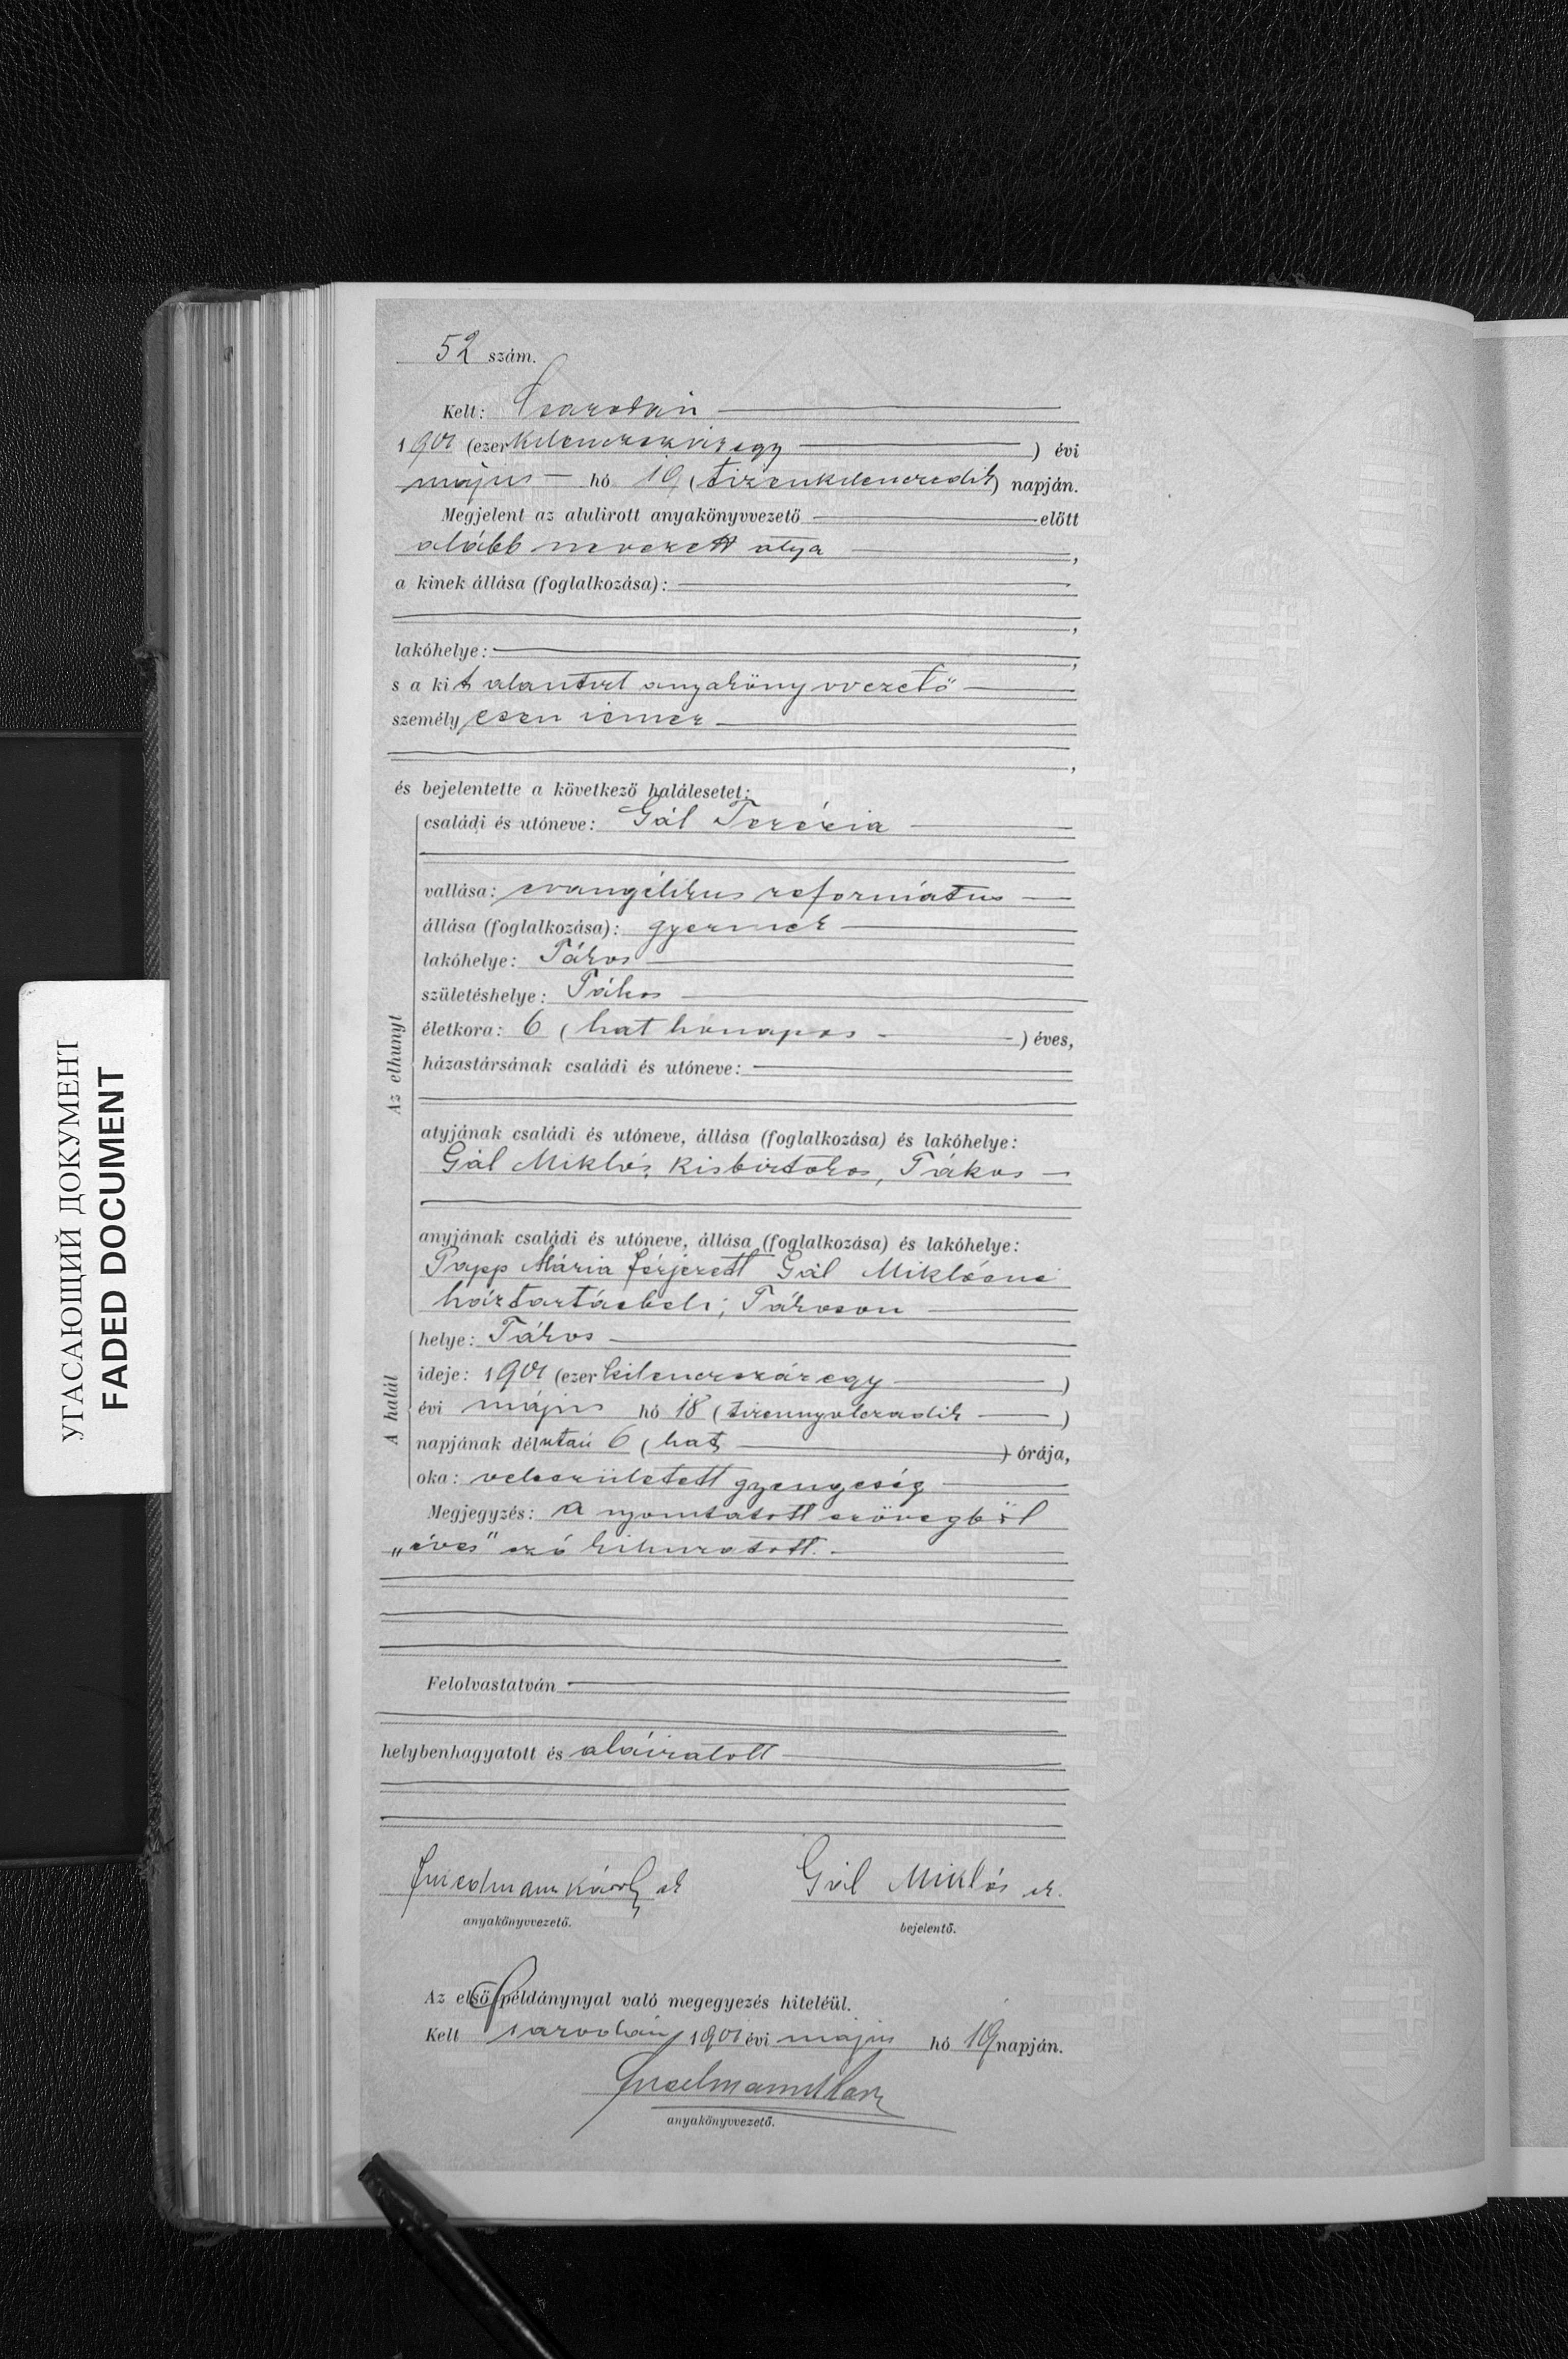 52 szám.
Kelt: Csarodán
1901 (ezerkilenczszázegy) évi
május hó 19 (tizenkilenczedik) napján.
Megjelent az alulirott anyakönyvvezető előtt
alább nevezett atya,
a kinek állása (foglalkozása):
lakóhelye:
s a kit alantirt anyakönyvvezető
személyesen ismer
és bejelentette a következő halálesetet:
Az elhunyt
családi és utóneve: Gál Terézia
vallása: evangélikus református
állása (foglalkozása): gyermek
lakóhelye: Tákos
születéshelye: Tákos
életkora: 6 (hat hónapos) éves,
házastársának családi és utóneve:
atyjának családi és utóneve, állása (foglalkozása) és lakóhelye:
Gál Miklós, kisbirtokos, Tákos
anyjának családi és utóneve, állása (foglalkozása) és lakóhelye:
Papp Mária férjezett Gál Miklósné
háztartásbeli, Tákoson
A halál
helye: Tákos
ideje: 1901 (ezerkilenczszázegy)
évi május hó 18 (tizennyolczadik)
napjának délután 6 (hat) órája,
oka: veleszületett gyengeség
Megjegyzés: A nyomtatott szövegből
„éves" szó kihuzatott.
Felolvastatván
helybenhagyatott és aláiratott
Friedmann Károly sk Gál Miklós sk.
anyakönyvvezető. bejelentő.
Az első példánynyal való megegyezés hiteléül.
Kelt Csarodán 1901 évi május hó 19 napján.
Friedmann Károly
anyakönyvvezető.
УГАСАЮЩИЙ ДОКУМЕНТ
FADED DOCUMENT